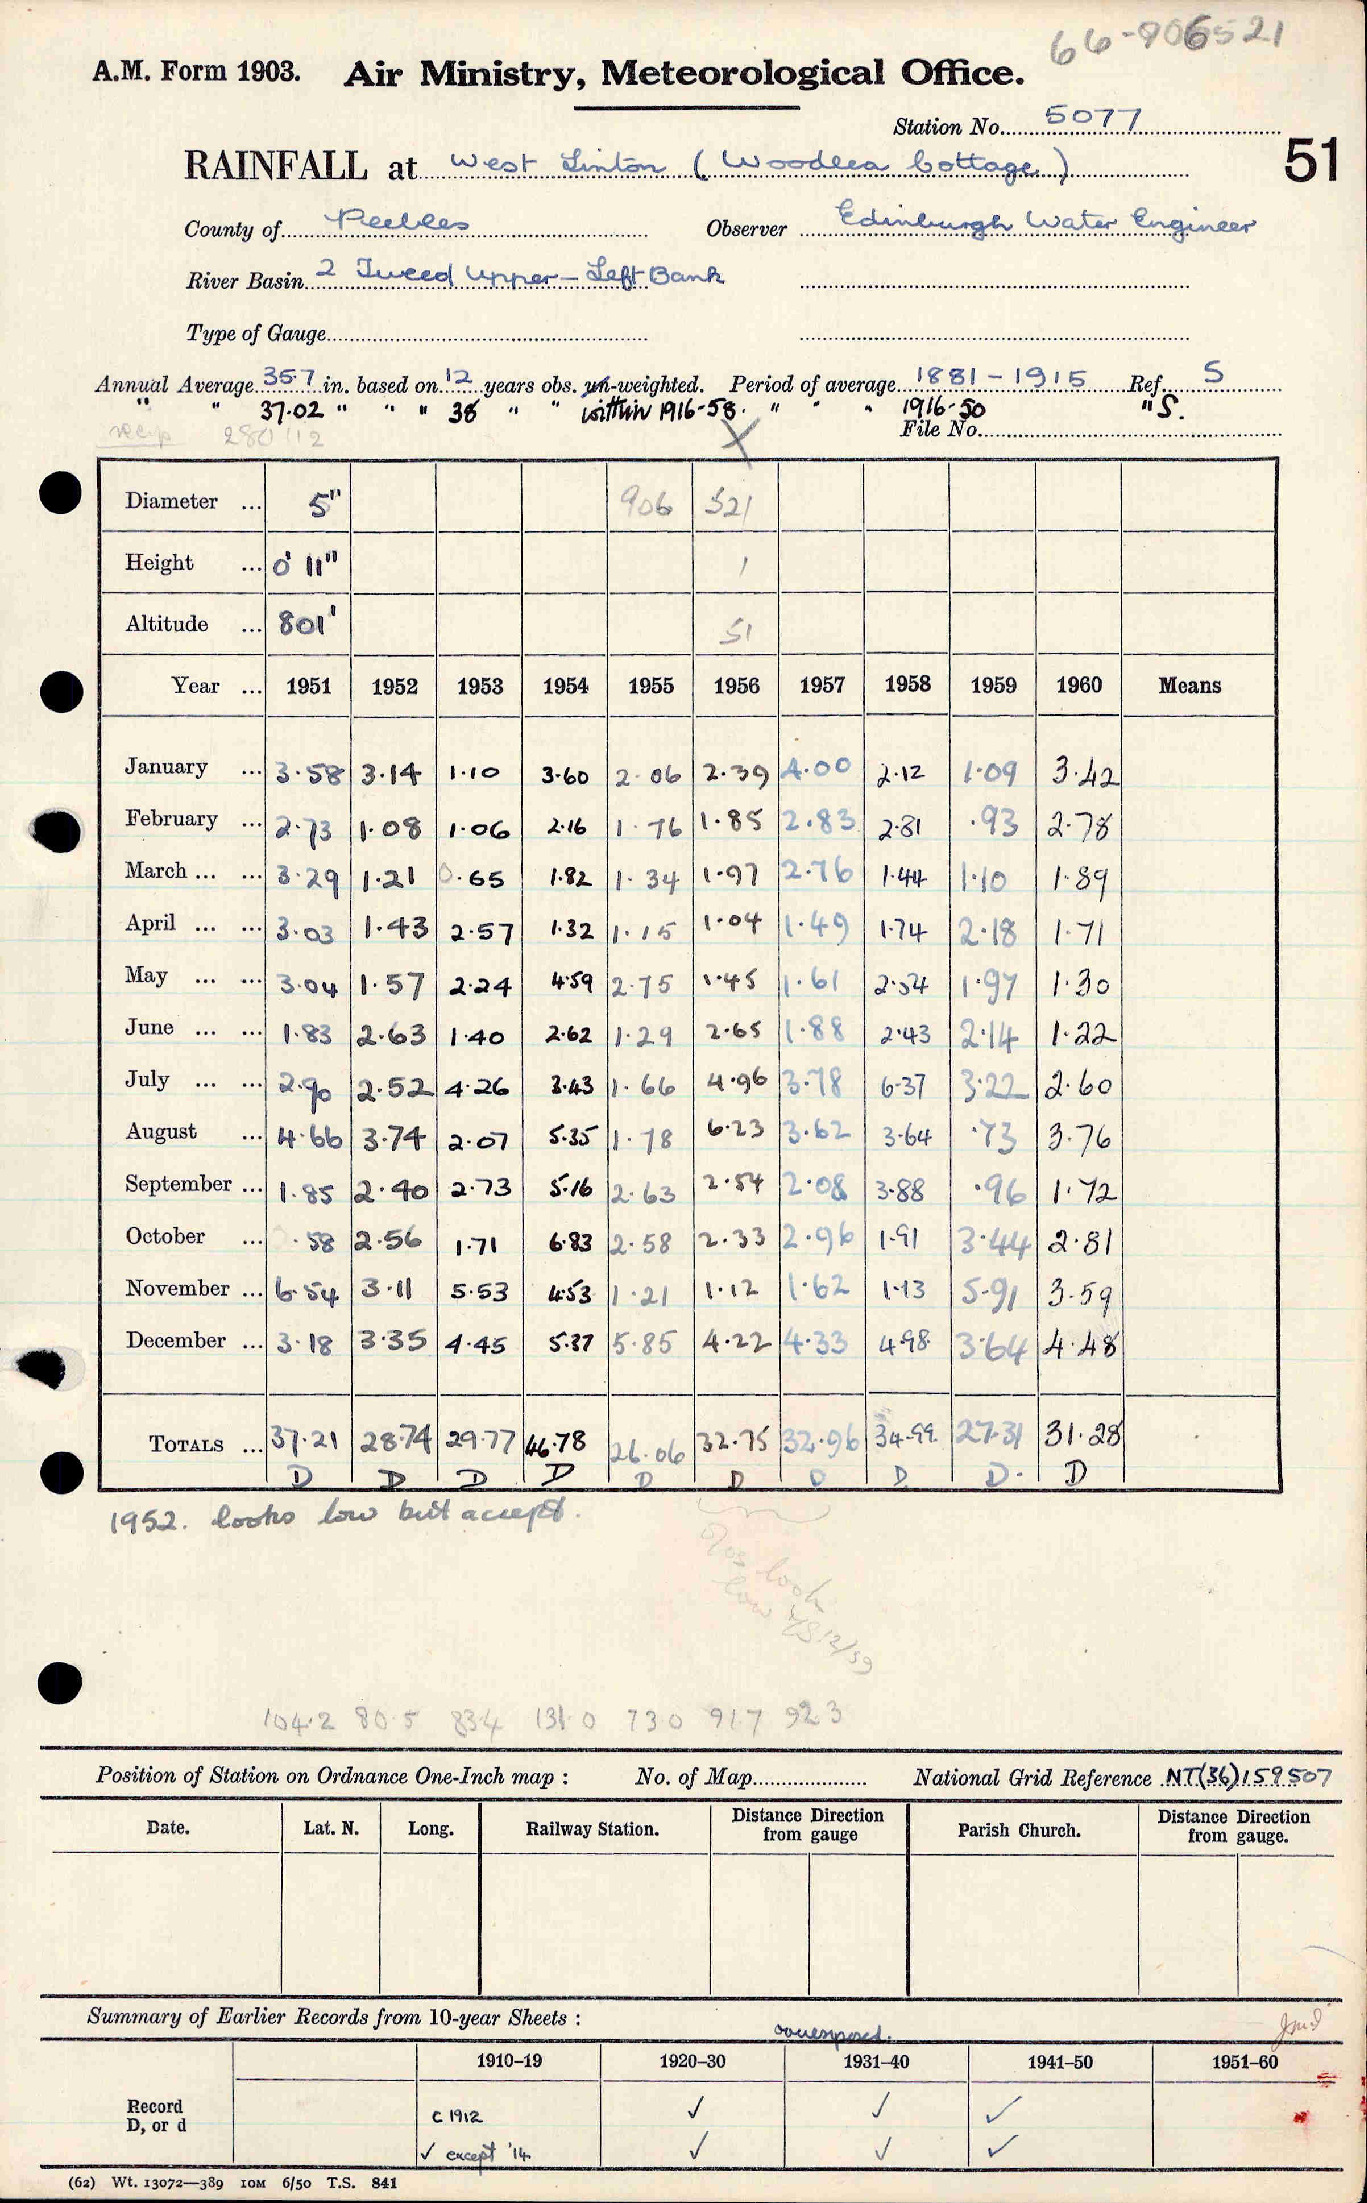 66-906521
A.M. Form 1903. Air Ministry, Meteorological Office.
Station No. 5077
51
RAINFALL at West Linton (Woodlea Cottage)
County of Peebles Observer Edinburgh Water Engineer
River Basin 2 Tweed Upper - Left Bank
Type of Gauge
Annual Average 35.7 in. based on 12 years obs. un-weighted. Period of average 1881-1915 Ref. S
" " 37.02 " " " 38 " " " within 1916-58. " " " 1916-50 " S.
File No.
280 112
Diameter ... 5" 906 521
Height ... 0' 11" 1
Altitude ... 801' 51
Year ... 1951 1952 1953 1954 1955 1956 1957 1958 1959 1960 Means
January ... 3.58 3.14 1.10 3.60 2.06 2.39 4.00 2.12 1.09 3.42
February ... 2.73 1.08 1.06 2.16 1.76 1.85 2.83 2.81 .93 2.78
March ... ... 3.29 1.21 0.65 1.82 1.34 1.97 2.76 1.44 1.10 1.89
April ... ... 3.03 1.43 2.57 1.32 1.15 1.04 1.49 1.74 2.18 1.71
May ... ... 3.04 1.57 2.24 4.59 2.75 1.45 1.61 2.54 1.97 1.30
June ... ... 1.83 2.63 1.40 2.62 1.29 2.65 1.88 2.43 2.14 1.22
July ... ... 2.90 2.52 4.26 3.43 1.66 4.96 3.78 6.37 3.22 2.60
August ... 4.66 3.74 2.07 5.35 1.78 6.23 3.62 3.64 .73 3.76
September ... 1.85 2.40 2.73 5.16 2.63 2.54 2.08 3.88 .96 1.72
October ... .58 2.56 1.71 6.83 2.58 2.33 2.96 1.91 3.44 2.81
November ... 6.54 3.11 5.53 4.53 1.21 1.12 1.62 1.13 5.91 3.59
December ... 3.18 3.35 4.45 5.37 5.85 4.22 4.33 4.98 3.64 4.48
TOTALS ... 37.21 28.74 29.77 46.78 26.06 32.75 32.96 34.99 27.31 31.28
D D D D D D D D D. D
1952. looks low but accept.
look
low
12/59
104.2 80.5 83.4 131.0 73.0 91.7 92.3
Position of Station on Ordnance One-Inch map : No. of Map National Grid Reference NT(36)159507
Date. Lat. N. Long. Railway Station. Distance Direction from gauge Parish Church. Distance Direction from gauge.
Summary of Earlier Records from 10-year Sheets :
1910-19 1920-30 1931-40 1941-50 1951-60
Record D, or d
c 1912 ✓ ✓ ✓
✓ except '14 ✓ ✓ ✓
(62) Wt. 13072—389 10M 6/50 T.S. 841